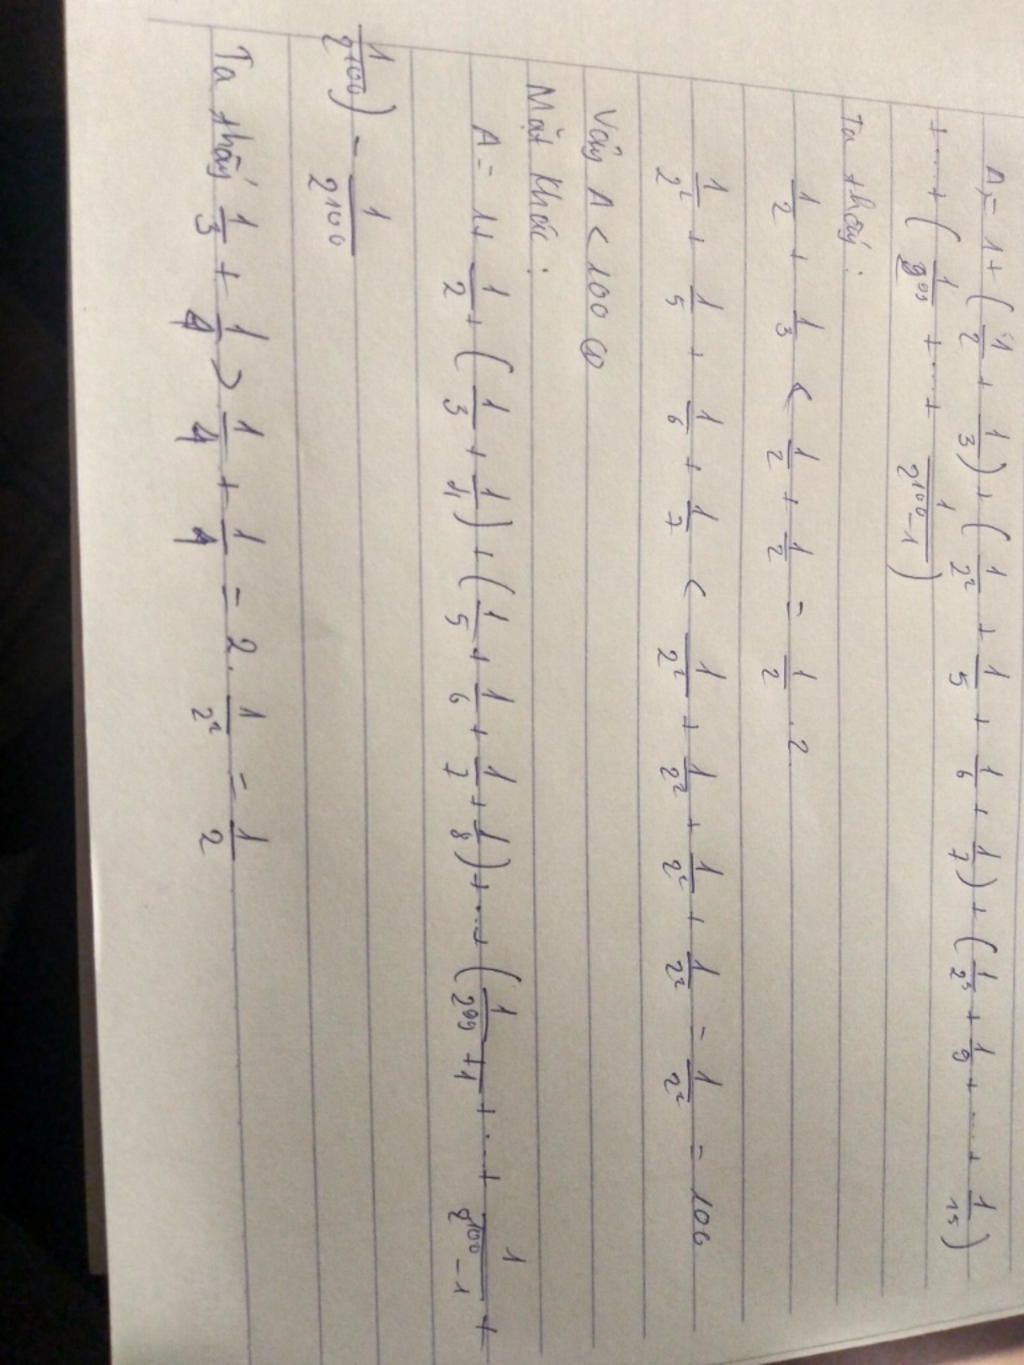 A = 1 + (1/2 + 1/3) + (1/2² + 1/5 + 1/6 + 1/7) + (1/2³ + 1/9 + ... + 1/15)
+ ... + (1/2⁹⁹ + ... + 1/2¹⁰⁰ - 1)
Ta thấy :
1/2 + 1/3 < 1/2 + 1/2 = 1/2 . 2
1/2² + 1/5 + 1/6 + 1/7 < 1/2² + 1/2² + 1/2² + 1/2² = 1/2² = 100
Vậy A < 100 (1)
Mặt khác :
A = 1 + 1/2 + (1/3 + 1/4) + (1/5 + 1/6 + 1/7 + 1/8) + ... + (1/2⁹⁹ + 1 + ... + 1/2¹⁰⁰ - 1 +
1/2¹⁰⁰) - 1/2¹⁰⁰
Ta thấy 1/3 + 1/4 > 1/4 + 1/4 = 2 . 1/2² = 1/2